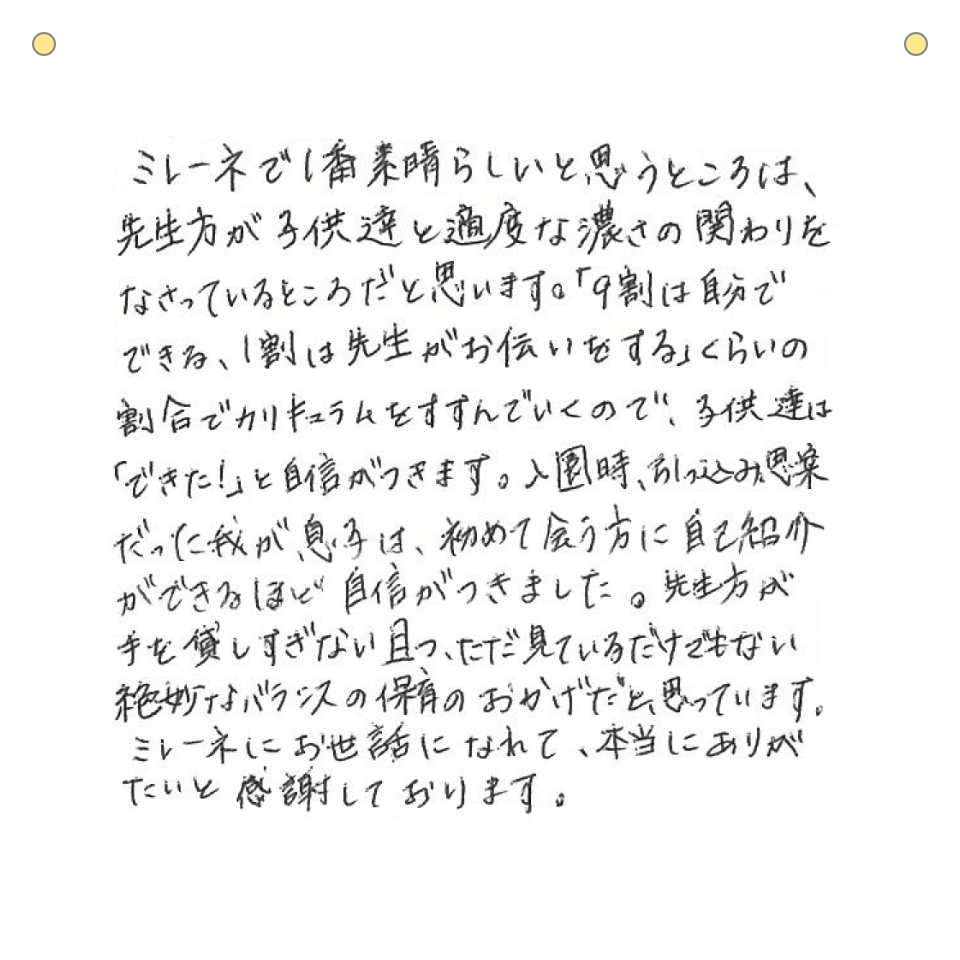 ミレーネで1番素晴らしいと思うところは、
先生方が子供達と適度な濃さの関わりを
なさっているところだと思います。「9割は自分で
できる、1割は先生がお伝いをする」くらいの
割合でカリキュラムをすすんでいくので、子供達は
「できた!」と自信がつきます。入園時、引っ込み思案
だった我が息子は、初めて会う方に自己紹介
ができるほど自信がつきました。先生方が
手を貸しすぎない且つ、ただ見ているだけでもない
絶妙なバランスの保育のおかげだと思っています。
ミレーネにお世話になれて、本当にありが
たいと感謝しております。